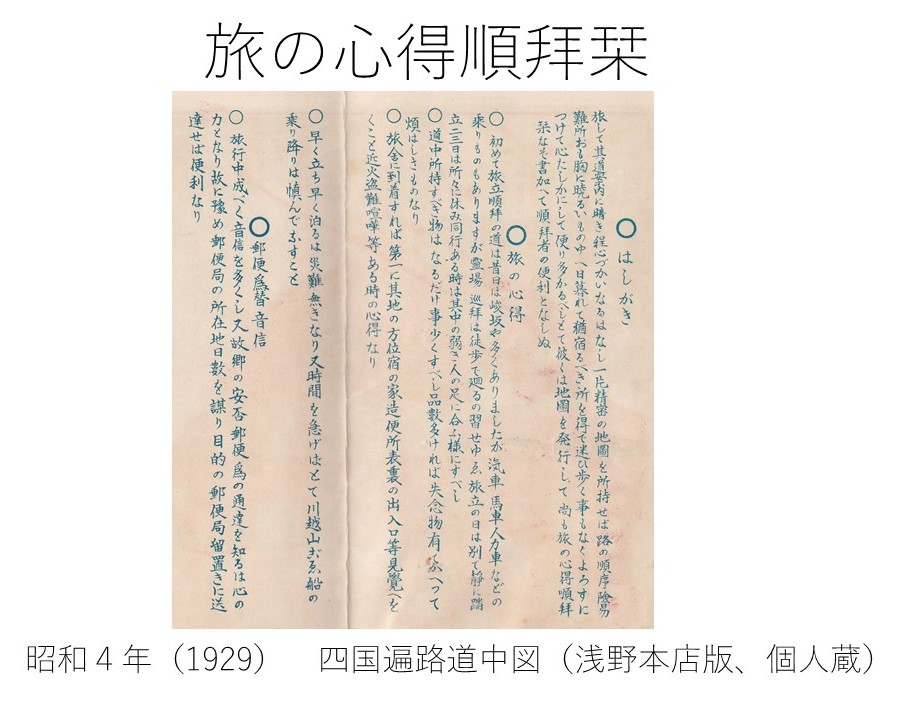 旅の心得順拝栞
〇 はしがき
旅して其道案内に暗き程心づかいなるはなし一片精密の地圖を所持せば路の順序險易
難所おも胸に暁るいものゆへ日暮れて猶宿るべき所を得で迷ひ歩く事もなくよろずに
つけて心たしかにして便り多かるべしとて彼くは地圖を発行して尚も旅の心得順拜
栞なぞ書加へて順拜者の便利となしぬ
〇 旅の心得
〇 初めて旅立順拜の道は昔日は峻坂や多くありましたが汽車馬車人力車などの
乗りものもありますが霊場巡拜は徒歩で廻るの習せゆゑ旅立の日は別て静に踏
立二三日は所々に休み同行ある時は其中の弱き人の足に合ふ様にすべし
〇 道中所持すべき物はなるだけ事少くすべし品數多ければ失念物有てかへつて
煩はしきものなり
〇 旅舎に到着すれば第一に其地の方位宿の家造便所表裏の出入口等見覺へを
くこと近火盗難喧嘩等ある時の心得なり
〇 早く立ち早く泊るは災難無きなり又時間を急げばとて川越山ごゑ船の
乗り降りは慎んで为すこと
〇 郵便為替音信
〇 旅行中成べく音信を多くし又故郷の安否郵便爲の通達を知るは心の
力となり故に豫め郵便局の所在地日數を謀り目的の郵便局留置きに送
達せば便利なり
昭和4年（1929） 四国遍路道中図（浅野本店版、個人蔵）